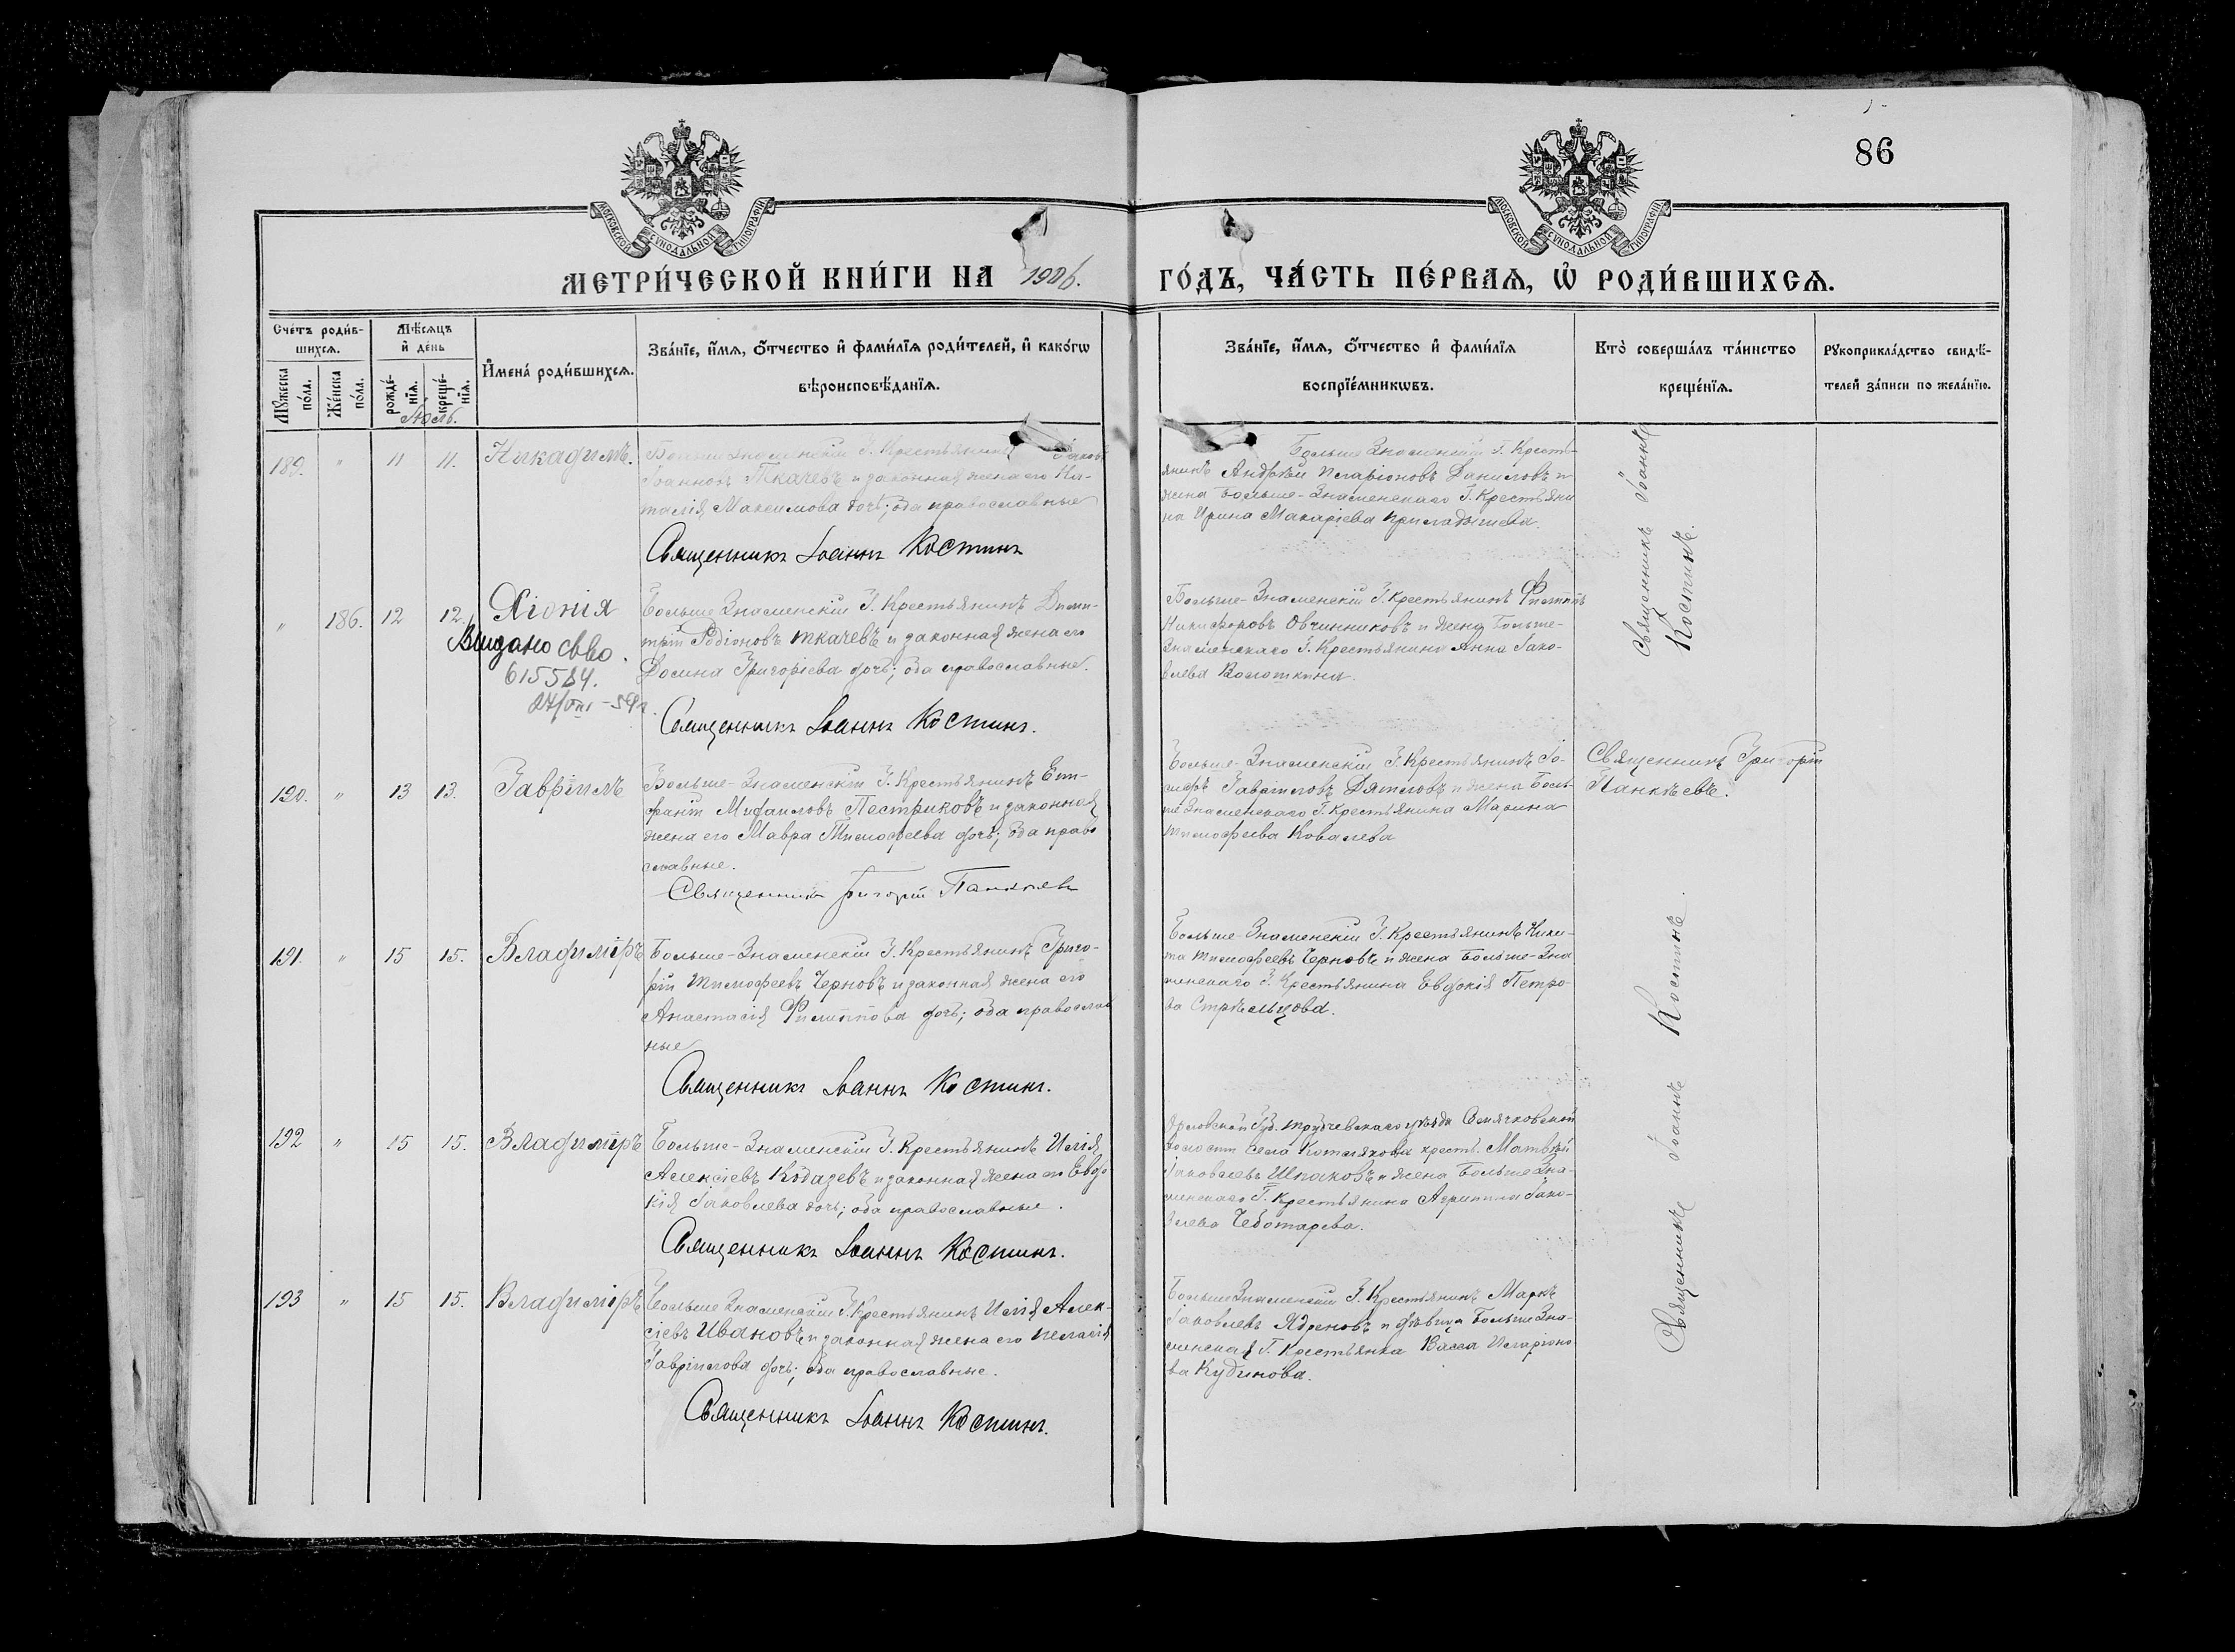 86
МОСКОВСКОЙ СѴНОДАЛЬНОЙ ТИПОГРАФІИ
МОСКОВСКОЙ СѴНОДАЛЬНОЙ ТИПОГРАФІИ
МЕТРИ́ЧЕСКОЙ КНИ́ГИ НА 1906. ГО́ДЪ, ЧА́СТЬ ПЕ́РВАѦ, Ѡ҆ РОДИ́ВШИХСѦ.
Сче́тъ роди́в-
шихсѧ.
Мꙋжеска по́ла.
Же́нска по́ла.
Мѣ́сѧцъ
и҆ де́нь
рожде́-
нїѧ.
креще́-
нїѧ.
И҆мена̀ роди́вшихсѧ.
Зва́нїе, и҆́мѧ, ѻ҆́тчество и҆ фами́лїѧ роди́телей, и҆ како́гѡ
вѣроисповѣ́данїѧ.
Зва́нїе, и҆́мѧ, ѻ҆́тчество и҆ фами́лїѧ
воспрїе́мникѡвъ.
Кто̀ соверша́лъ та́инство
креще́нїѧ.
Рꙋкоприкла́дство свидѣ́-
телей за́писи по жела́нїю.
189. " 11 11. Никадимъ.
Іоанновъ Ткачевъ и законная жена его На-
талія Максимова дочь; оба православные
Священникъ Іоаннъ Костинъ
Больше Знаменскій Г. Кресть-
янинъ Андрей Иларіоновъ Даниловъ и
жена Больше-Знаменскаго Г. Крестьяни
на Ирина Макаріева
Священникъ Іоаннъ
Костинъ.
" 186. 12 12. Хіонія
Выдано св-во
615584.
Больше Знаменскій Г. Крестьянинъ Дими-
трій Родіоновъ Ткачевъ и законная жена его
Григоріева дочь; оба православные.
Священникъ Іоаннъ Костинъ.
Больше-Знаменскій Г. Крестьянинъ Филиппъ
Никифоровъ Овчинниковъ и жена Больше-
Знаменскаго Г. Крестьянина Анна Іако-
влева
190. " 13 13. Гавріилъ
Больше-Знаменскій Г. Крестьянинъ Епи-
фаній Михаиловъ Пестриковъ и законная
жена его Мавра Тимофеева дочь; оба право
славные.
Священникъ Григорій Панкѣевъ
Больше-Знаменскій Г. Крестьянинъ Іо-
сифъ Гавріиловъ Дятловъ и жена Боль-
ше Знаменскаго Г. Крестьянина Марина
Тимофеева Ковалева
Священникъ Григорій
Панкѣевъ.
191. " 15 15. Владиміръ
Больше-Знаменскій Г. Крестьянинъ Григо-
рій Тимофеевъ Черновъ и законная жена его
Анастасія Филиппова дочь; оба православ
ные
Священникъ Іоаннъ Костинъ.
Больше-Знаменскій Г. Крестьянинъ Ники-
та Тимофеевъ Черновъ и жена Больше-Зна
менскаго Г. Крестьянина Евдокія Петро-
ва Стрѣльцова.
Священникъ Іоаннъ Костинъ.
192 " 15 15. Владиміръ
Больше-Знаменскій Г. Крестьянинъ Илія
Алексіевъ и законная жена его Евдо
кія Іаковлева дочь; оба православные.
Священникъ Іоаннъ Костинъ.
Орловской Губ. Трубчевскаго уѣзда Семячковской
волости села Котляково крест. Матвѣй
Іаковлевъ Шпаковъ и жена Больше Зна-
менскаго Г. Крестьянина Агрипина Іако-
влева Чеботарева.
193 " 15 15. Владиміръ
Больше Знаменскій Г. Крестьянинъ Илія Алек-
сіевъ Ивановъ и законная жена его Пелагія
Гавріилова дочь; оба православные.
Священникъ Іоаннъ Костинъ.
Больше Знаменскій Г. Крестьянинъ Маркъ
Іаковлевъ Ядреновъ и дѣвица Больше Зна-
менская Г. Крестьянка Васса Иларіоно
ва Кудинова.